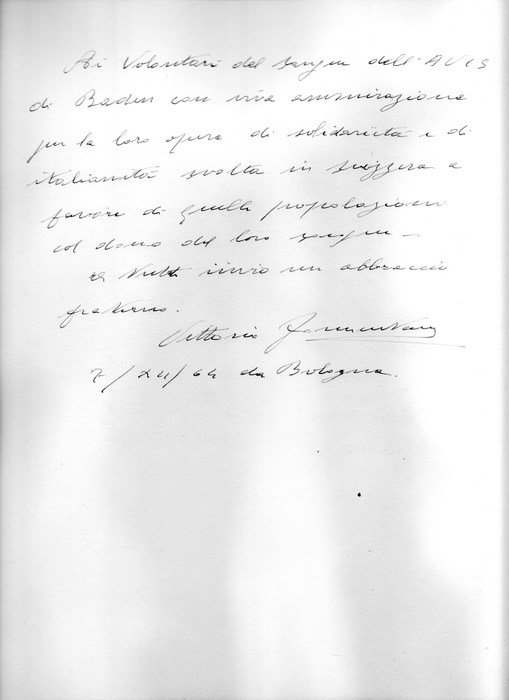 Ai Volontari del sangue dell'AVIS
di Baden con viva ammirazione
per la loro opera di solidarietà e di
italianità svolta in svizzera a
favore di quelle popolazioni
col dono del loro sangue -
a tutti invio un abbraccio
fraterno.
Vittorio Formentano
7/XII/64 da Bologna.